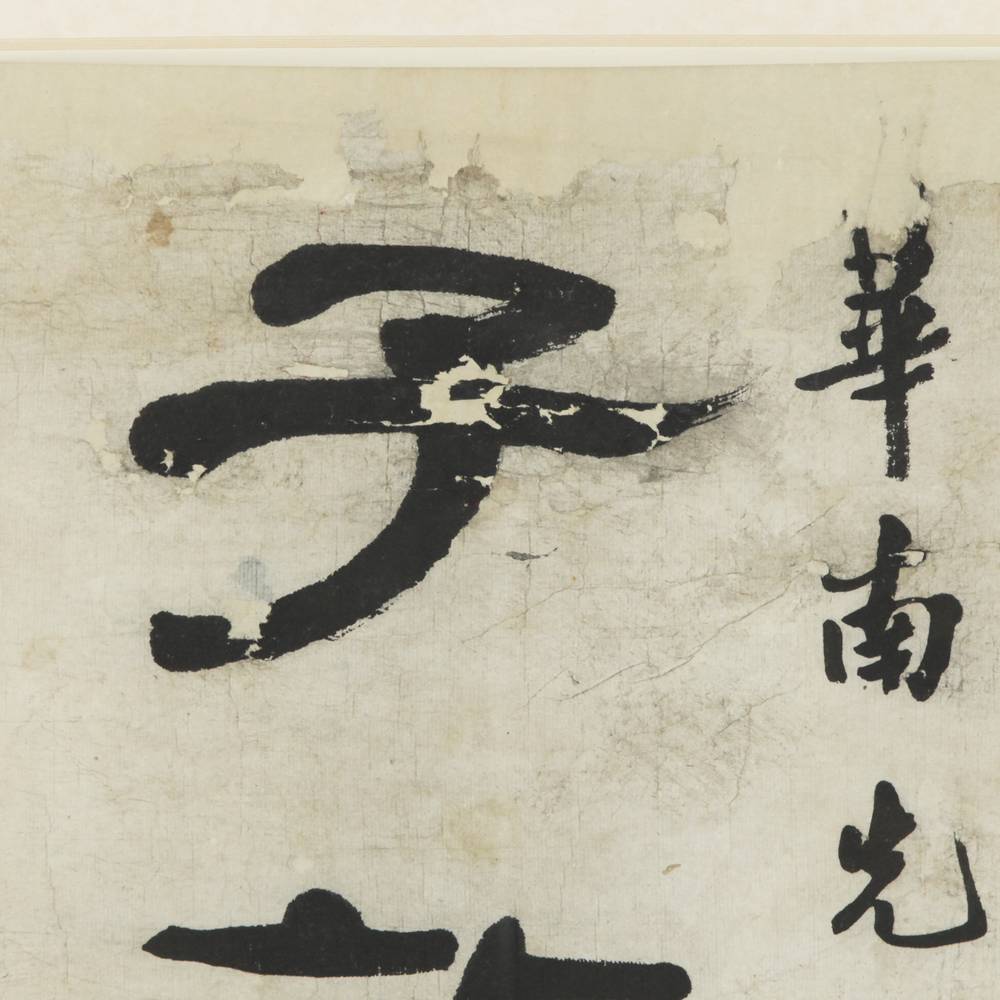 華南先
子